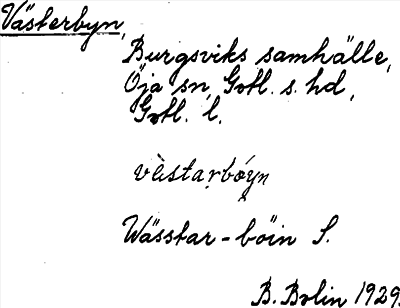 Västerbyn,
Burgsviks samhälle,
Öja sn, Gotl. s. hd,
Gotl. l.
vèstarbóyn
Wässtar-böin S.
B. Bolin 1929.